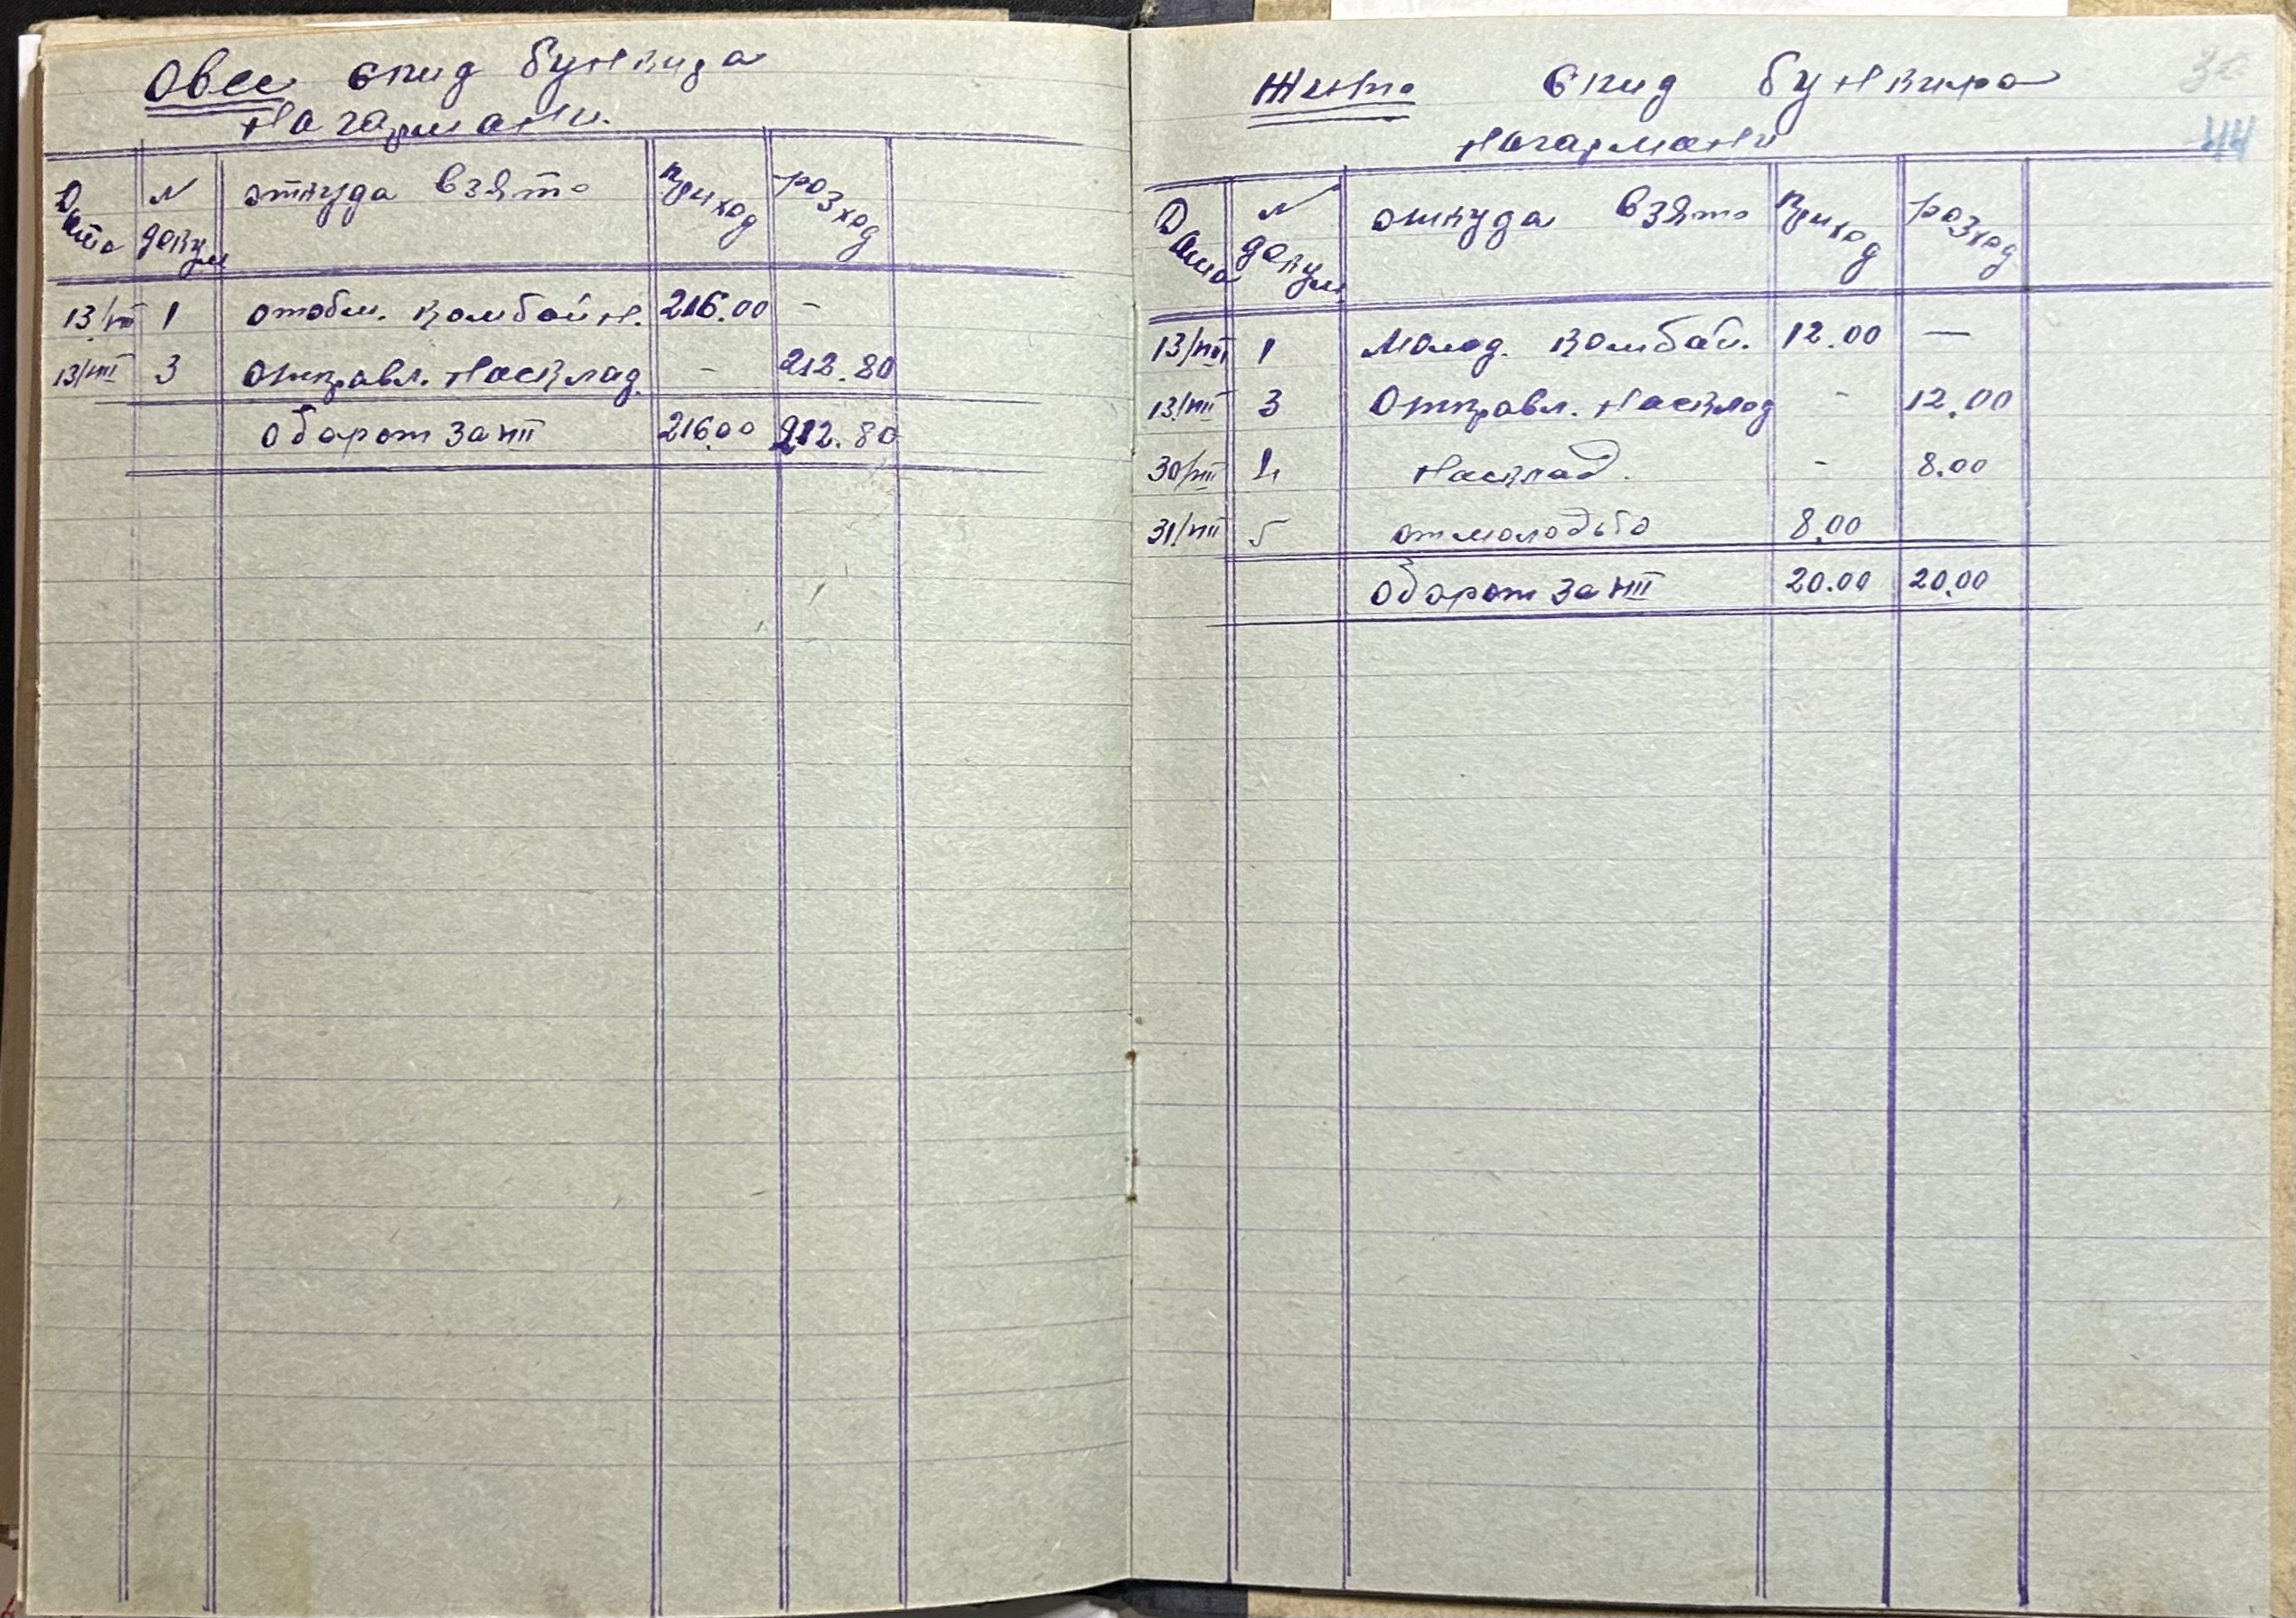 Овес спид бункида
Нагармани.
Дата | № докум | откуда взято | приход | розход
13/VIII | 1 | отобм. комбайн. | 216.00 | -
13/VIII | 3 | отправл. насклад | - | 212.80
Оборот за VIII | 216.00 | 212.80
44
Жито спид бункира
Нагармани
Дата | № докум | откуда взято | приход | розход
13/VIII | 1 | Молод. комбай. | 12.00 | —
13/VIII | 3 | Отправл. насклад | - | 12.00
30/VIII | 4 | Насклад. | - | 8.00
31/VIII | 5 | отмолодьба | 8.00
Оборот за VIII | 20.00 | 20.00